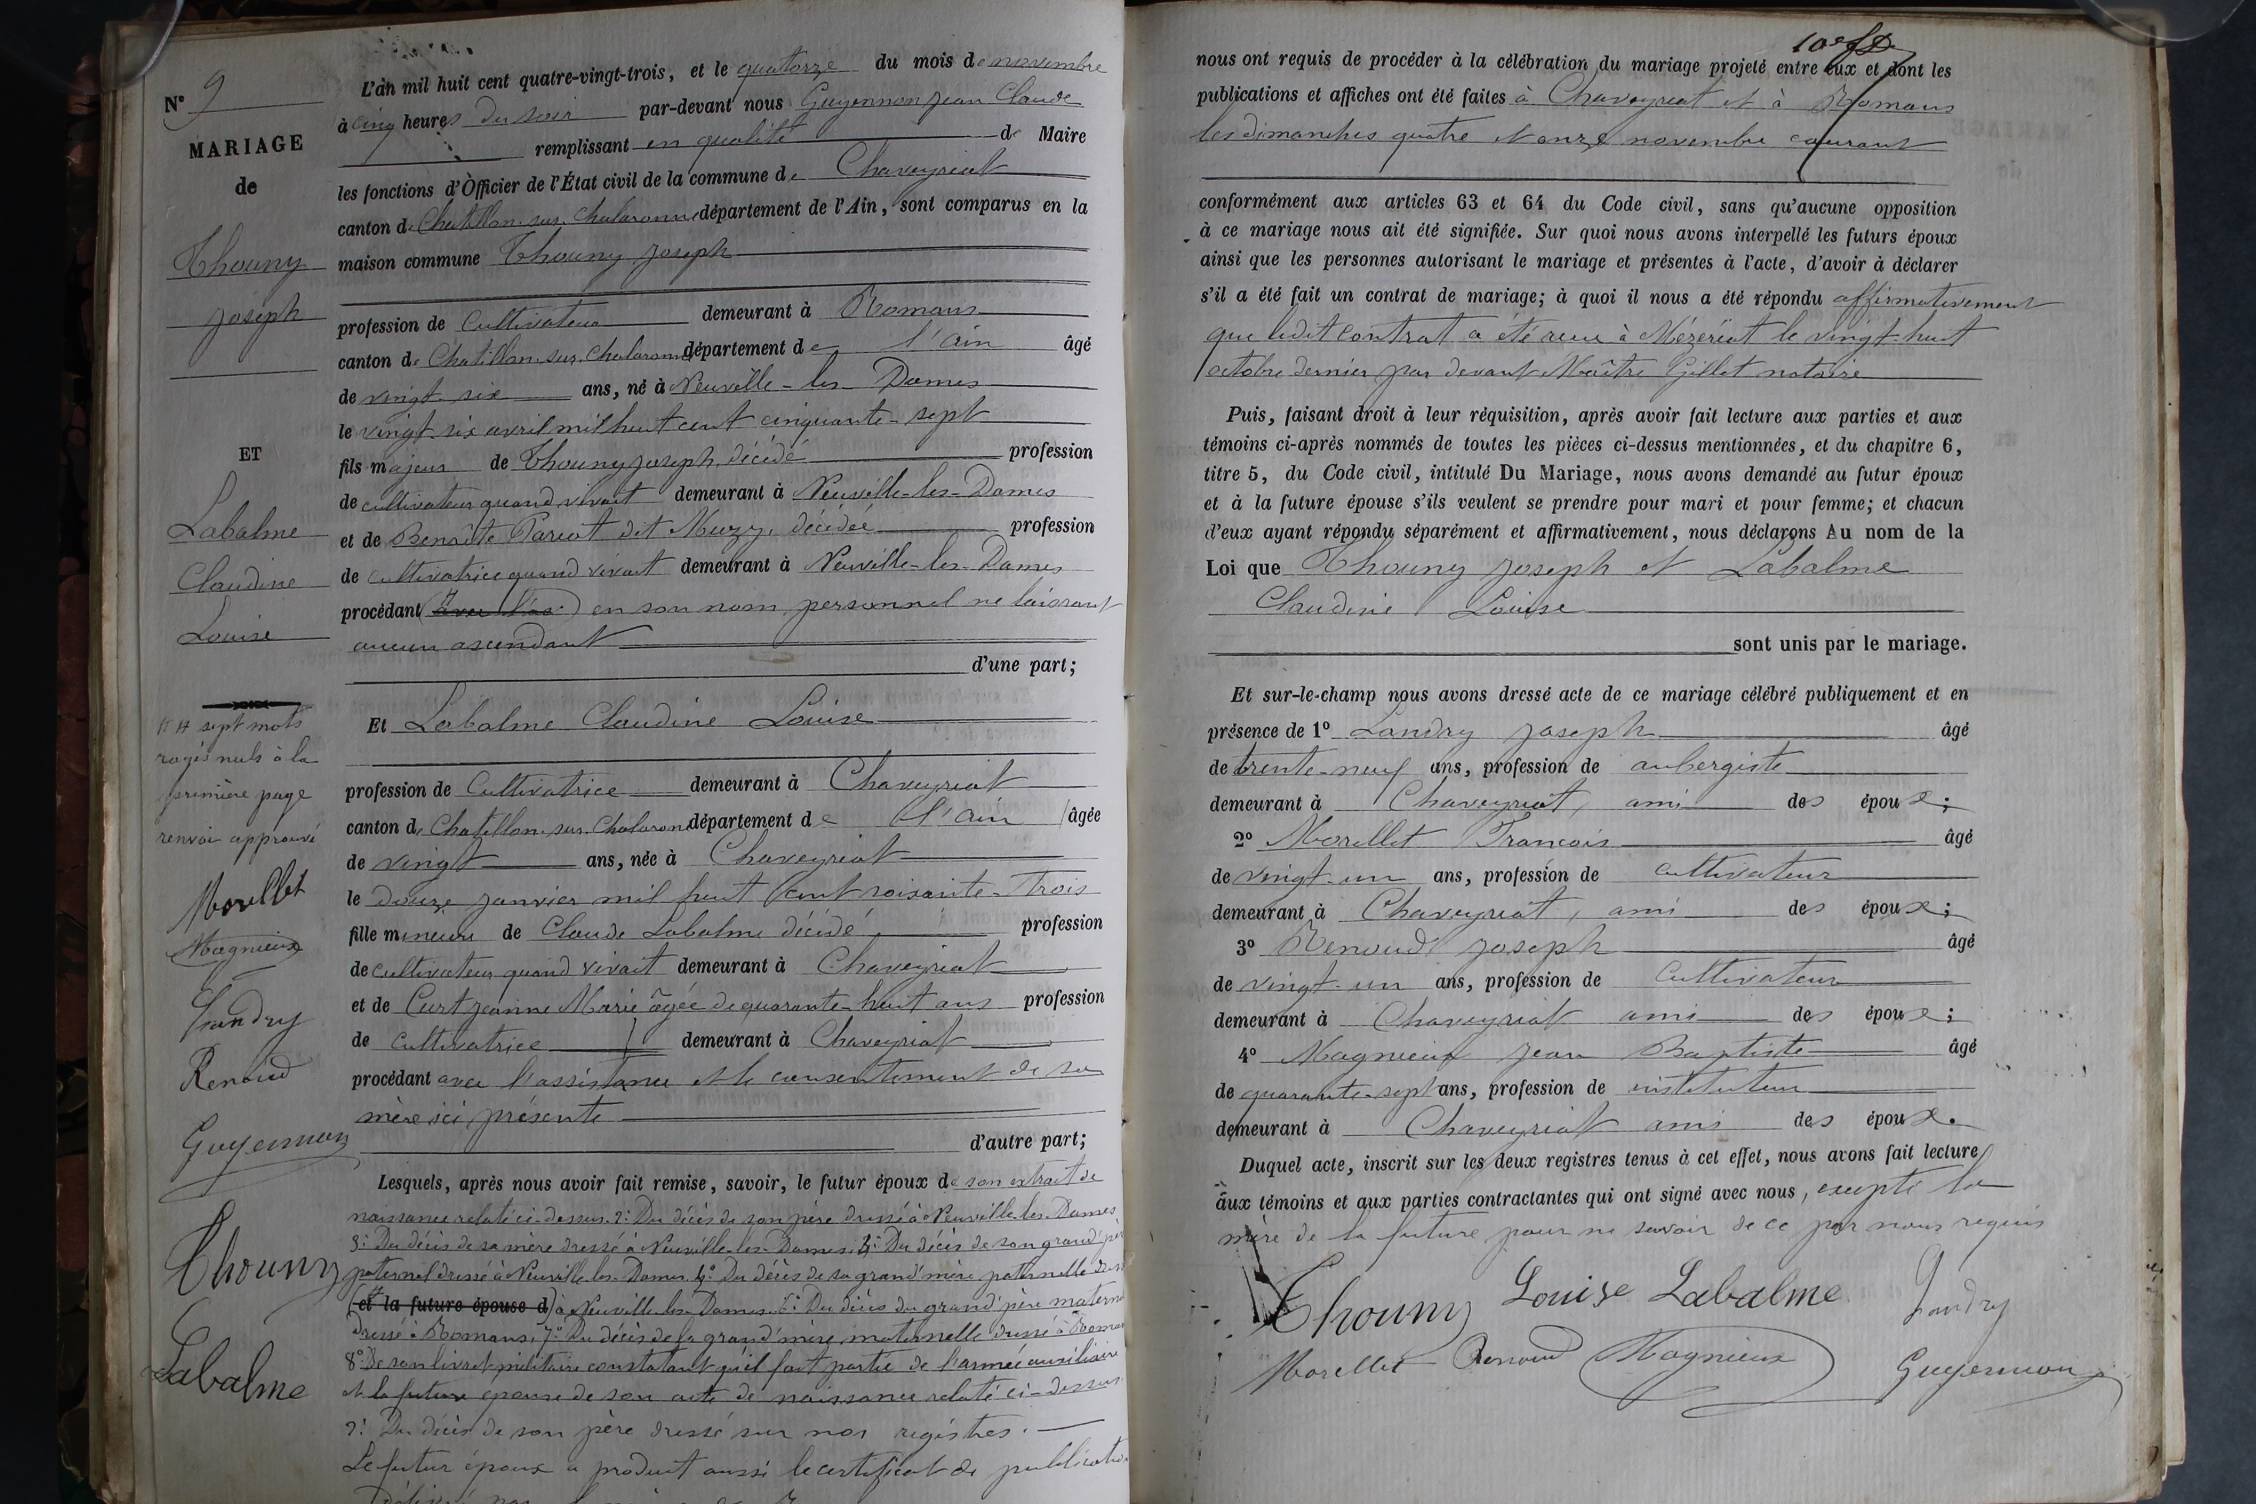 N° 9
MARIAGE
de
Thouny
Joseph
ET
Labalme
Claudine
Louise
sept mots
rayés nuls à la
première page
renvoi approuvé
Morellet
Magnieux
Landry
Renoud
Guyennon
Thouny
Labalme
L'an mil huit cent quatre-vingt-trois, et le quatorze du mois de novembre
à cinq heures du soir par-devant nous Guyennon Jean Claude
remplissant en qualité de Maire
les fonctions d'Officier de l'État civil de la commune de Chaveyriat
canton de Chatillon-sur-Chalaronne département de l'Ain, sont comparus en la
maison commune Thouny Joseph
profession de cultivateur demeurant à Romans
canton de Chatillon-sur-Chalaronne département de l'ain âgé
de vingt-six ans, né à Neuville-les-Dames
le vingt-six avril mil huit cent cinquante-sept
fils majeur de Thouny Joseph, décédé profession
de cultivateur quand vivait demeurant à Neuville-les-Dames
et de Benoîte Pariot dit Muzy, décédée profession
de cultivatrice quand vivait demeurant à Neuville-les-Dames
procédant (avec l'as.) en son nom personnel ne laissant
aucun ascendant
d'une part;
Et Labalme Claudine Louise
profession de Cultivatrice demeurant à Chaveyriat
canton de Chatillon-sur-Chalaronne département de l'ain âgée
de vingt ans, née à Chaveyriat
le douze janvier mil huit cent soixante-trois
fille mineure de Claude Labalme décédé profession
de cultivateur quand vivait demeurant à Chaveyriat
et de Curt Jeanne Marie âgée de quarante-huit ans profession
de cultivatrice demeurant à Chaveyriat
procédant avec l'assistance et le consentement de sa
mère ici présente
d'autre part;
Lesquels, après nous avoir fait remise, savoir, le futur époux de son extrait de
naissance relaté ci-dessus. 2° Du décès de son père dressé à Neuville-les-Dames
3° Du décès de sa mère dressé à Neuville-les-Dames. 4° Du décès de son grand'père
paternel dressé à Neuville-les-Dames. Du décès de sa grand'mère paternelle
(et la future épouse d) à Neuville-les-Dames. 6° Du décès du grand'père
dressé à Romans. 7° Du décès de la grand'mère maternelle dressé à
8° De son livret militaire constatant qu'il fait partie de l'armée auxiliaire
et la future épouse de son acte de naissance relaté ci-dessus
2° Du décès de son père dressé sur nos registres.
Le futur époux a produit aussi le certificat de
nous ont requis de procéder à la célébration du mariage projeté entre eux et dont les
publications et affiches ont été faites à Chaveyriat et à Romans
les dimanches quatre et onze novembre courant
conformément aux articles 63 et 64 du Code civil, sans qu'aucune opposition
à ce mariage nous ait été signifiée. Sur quoi nous avons interpellé les futurs époux
ainsi que les personnes autorisant le mariage et présentes à l'acte, d'avoir à déclarer
s'il a été fait un contrat de mariage; à quoi il nous a été répondu affirmativement
que ledit contrat a été reçu à Mézériat le vingt-huit
octobre dernier par devant Maître Gillet notaire
Puis, faisant droit à leur réquisition, après avoir fait lecture aux parties et aux
témoins ci-après nommés de toutes les pièces ci-dessus mentionnées, et du chapitre 6,
titre 5, du Code civil, intitulé Du Mariage, nous avons demandé au futur époux
et à la future épouse s'ils veulent se prendre pour mari et pour femme; et chacun
d'eux ayant répondu séparément et affirmativement, nous déclarons Au nom de la
Loi que Thouny Joseph et Labalme
Claudine Louise
sont unis par le mariage.
Et sur-le-champ nous avons dressé acte de ce mariage célébré publiquement et en
présence de 1° Landry Joseph âgé
de trente-neuf ans, profession de aubergiste
demeurant à Chaveyriat, ami des époux;
2° Morellet François âgé
de vingt-un ans, profession de cultivateur
demeurant à Chaveyriat, ami des époux;
3° Renoud Joseph âgé
de vingt-un ans, profession de cultivateur
demeurant à Chaveyriat ami des époux;
4° Magnieux Jean Baptiste âgé
de quarante-sept ans, profession de instituteur
demeurant à Chaveyriat ami des époux.
Duquel acte, inscrit sur les deux registres tenus à cet effet, nous avons fait lecture
aux témoins et aux parties contractantes qui ont signé avec nous, excepté la
mère de la future pour ne savoir de ce par nous requis
Thouny Louise Labalme Landry
Morellet Renoud Magnieux Guyennon